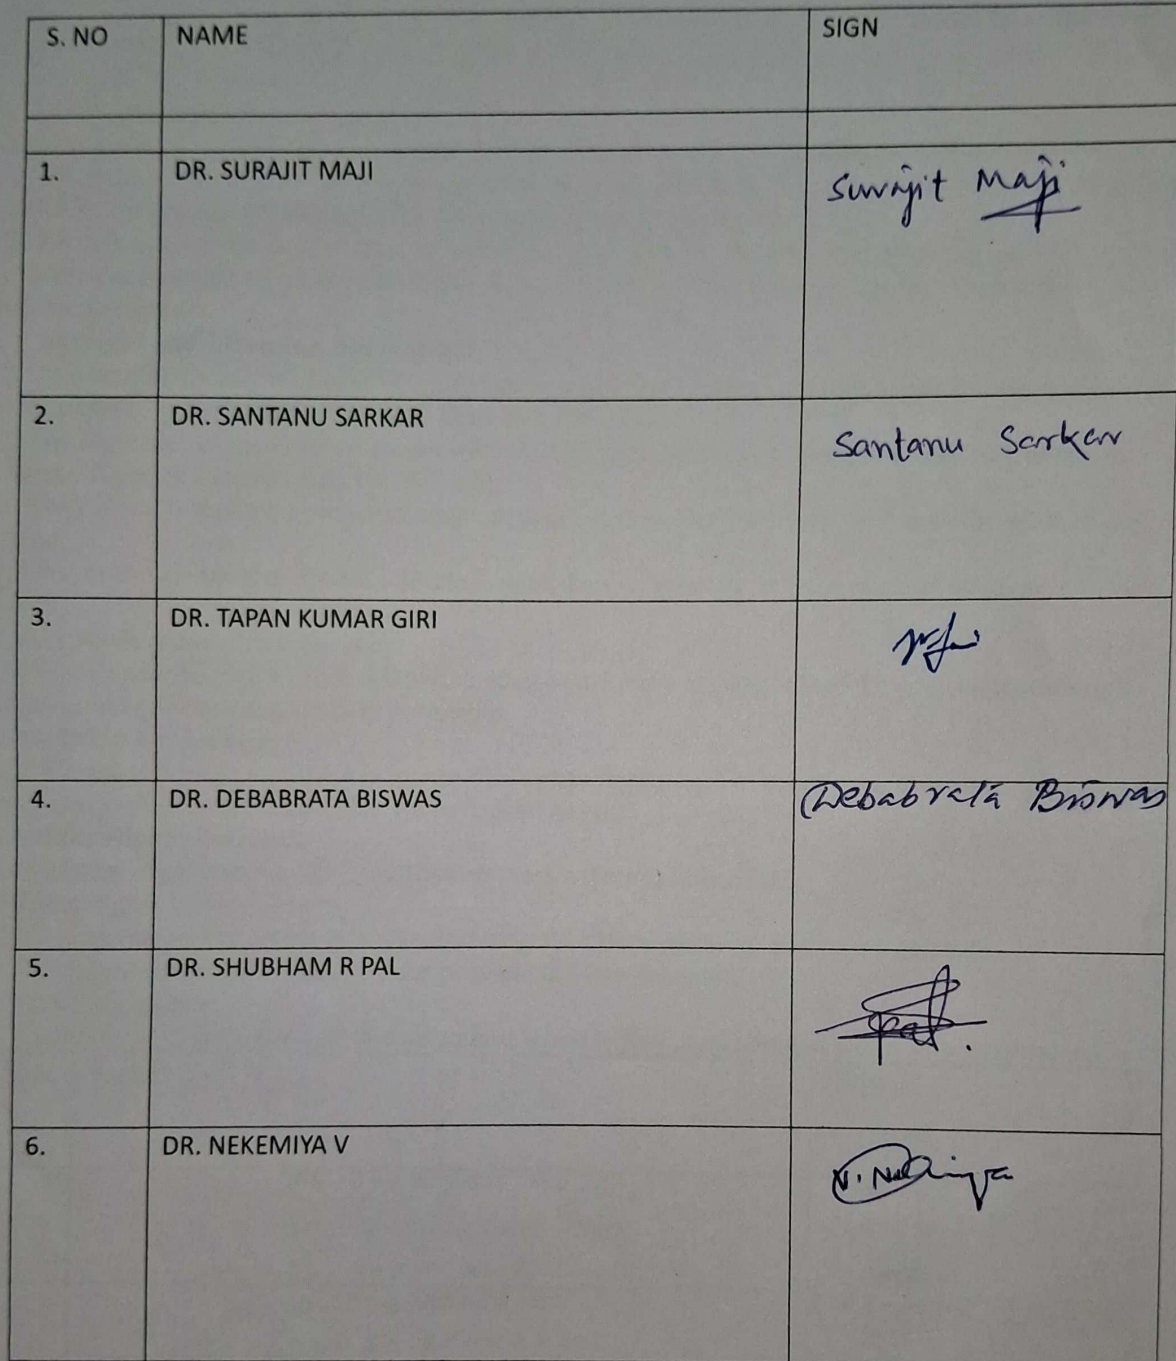 S. NO NAME SIGN
1. DR. SURAJIT MAJI Surajit Maji
2. DR. SANTANU SARKAR Santanu Sarkar
3. DR. TAPAN KUMAR GIRI
4. DR. DEBABRATA BISWAS Debabrata Biswas
5. DR. SHUBHAM R PAL Pal.
6. DR. NEKEMIYA V